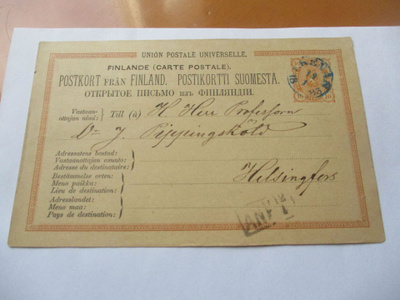 UNION POSTALE UNIVERSELLE.
FINLANDE (CARTE POSTALE).
POSTKORT FRÅN FINLAND. POSTIKORTTI SUOMESTA.
ОТКРЫТОЕ ПИСЬМО изъ ФИНЛЯНДІИ.
Vastaan-
ottajan nimi: Till (à) H Herr Professorn
Dr J. Pippingsköld
Adressatens bostad:
Vastaanottajan osoite:
Adresse du destinataire:
Helsingfors
Bestämmelse orten:
Meno paikka:
Lieu de destination:
Adresslandet:
Meno maa:
Pays de destination:
ANK